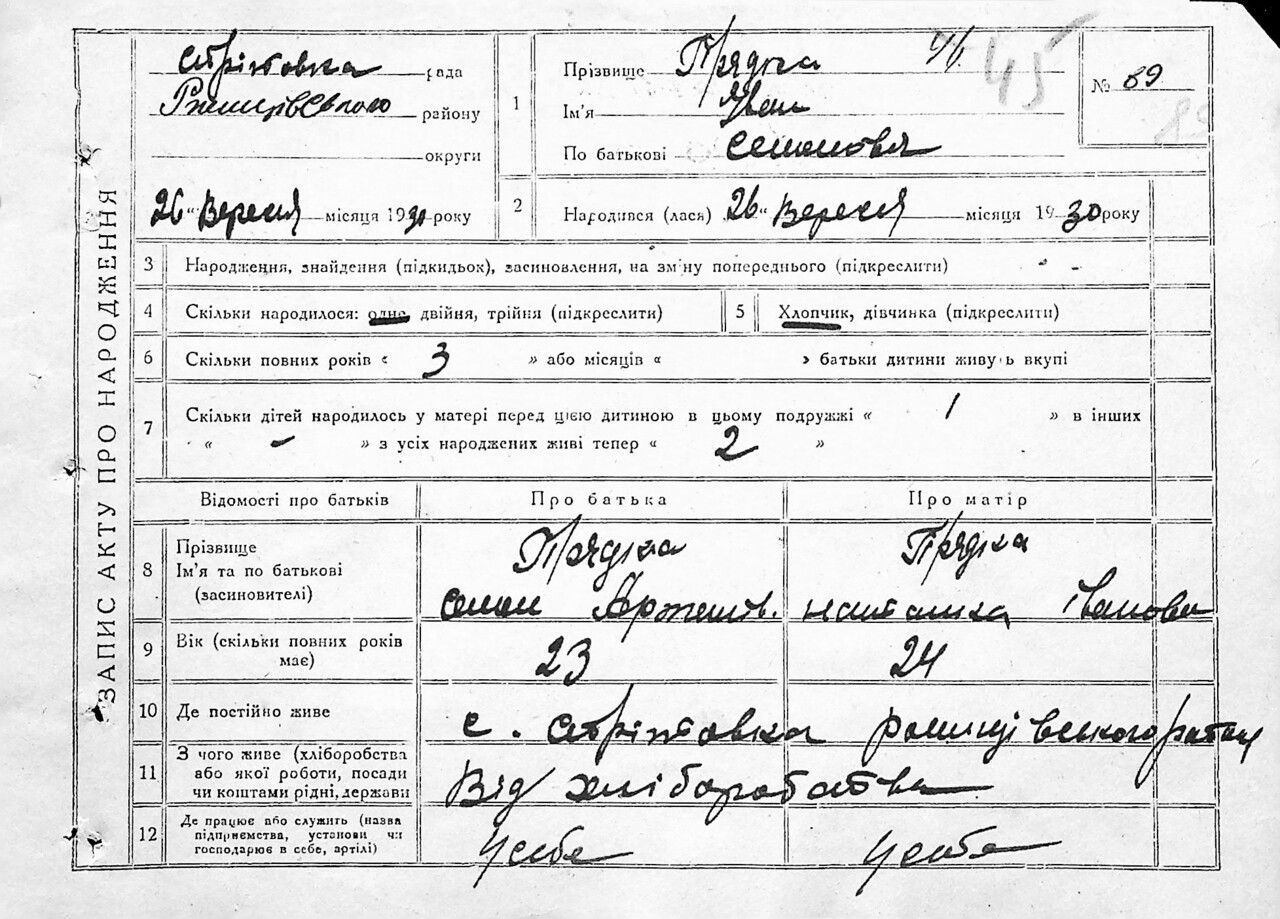 ЗАПИС АКТУ ПРО НАРОДЖЕННЯ
рада
району
округи
26 " Вересня місяця 1930 року
1 Прізвище Прядка
Ім'я Иван
По батькові Семенович
45
№ 89
2 Народився (лася) 26 " Вересня місяця 1930 року
3 Народження, знайдення (підкидьох), засиновлення, на зміну попереднього (підкреслити)
4 Скільки народилося: одне двійня, трійня (підкреслити)
5 Хлопчик, дівчинка (підкреслити)
6 Скільки повних років « 3 » або місяців « » батьки дитини живуть вкупі
7 Скільки дітей народилось у матері перед цією дитиною в цьому подружжі « 1 » в інших
« - » з усіх народжених живі тепер « 2 »
Відомості про батьків Про батька Про матір
8 Прізвище
Ім'я та по батькові
(засиновителі)
Прядка Прядка
наталка Іванова
9 Вік (скільки повних років
має)
23 24
10 Де постійно живе с.
11 З чого живе (хліборобства
або якої роботи, посади
чи коштами рідні, держави
Від хліборобства
12 Де працює або служить (назва
підприємства, установи чи
господарює в себе, артілі)
у себе у себе